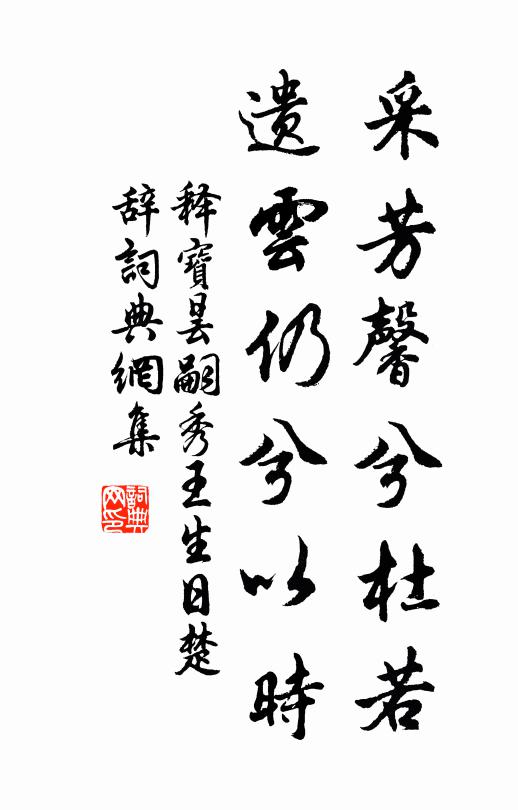 采芳馨兮杜若
遺雲仍兮以時
释寶曇嗣秀王生日楚
辞詞典網集
詞典
网印